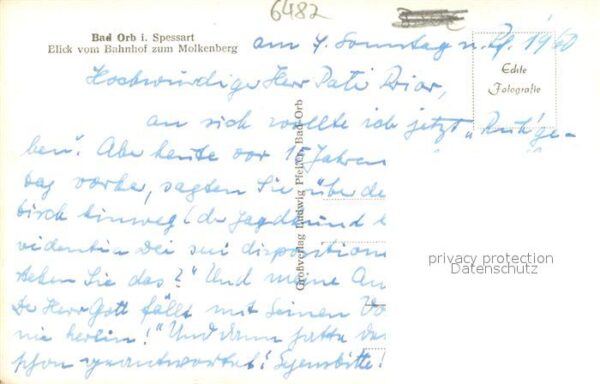 6482
Bad Orb i. Spessart
Blick vom Bahnhof zum Molkenberg
am 4. Sonntag n. Pf. 1960
Echte
Fotografie
Hochwürdiger Herr Pater Prior,
an sich wollte ich jetzt „Ruh' ge-
ben". Aber heute vor 15 Jahren
tag vorher, sagten Sie über de
hinweg (der Jagdhund
videntia Dei sui disposition
stehen Sie das?" Und meine An
De Herr Gott fällt mit Seinen Vo
nie herein!" Und dann hatte das
schon geantwortet! Segensbitte!
Großverlag Ludwig Piel, Bad-Orb
privacy protection
Datenschutz